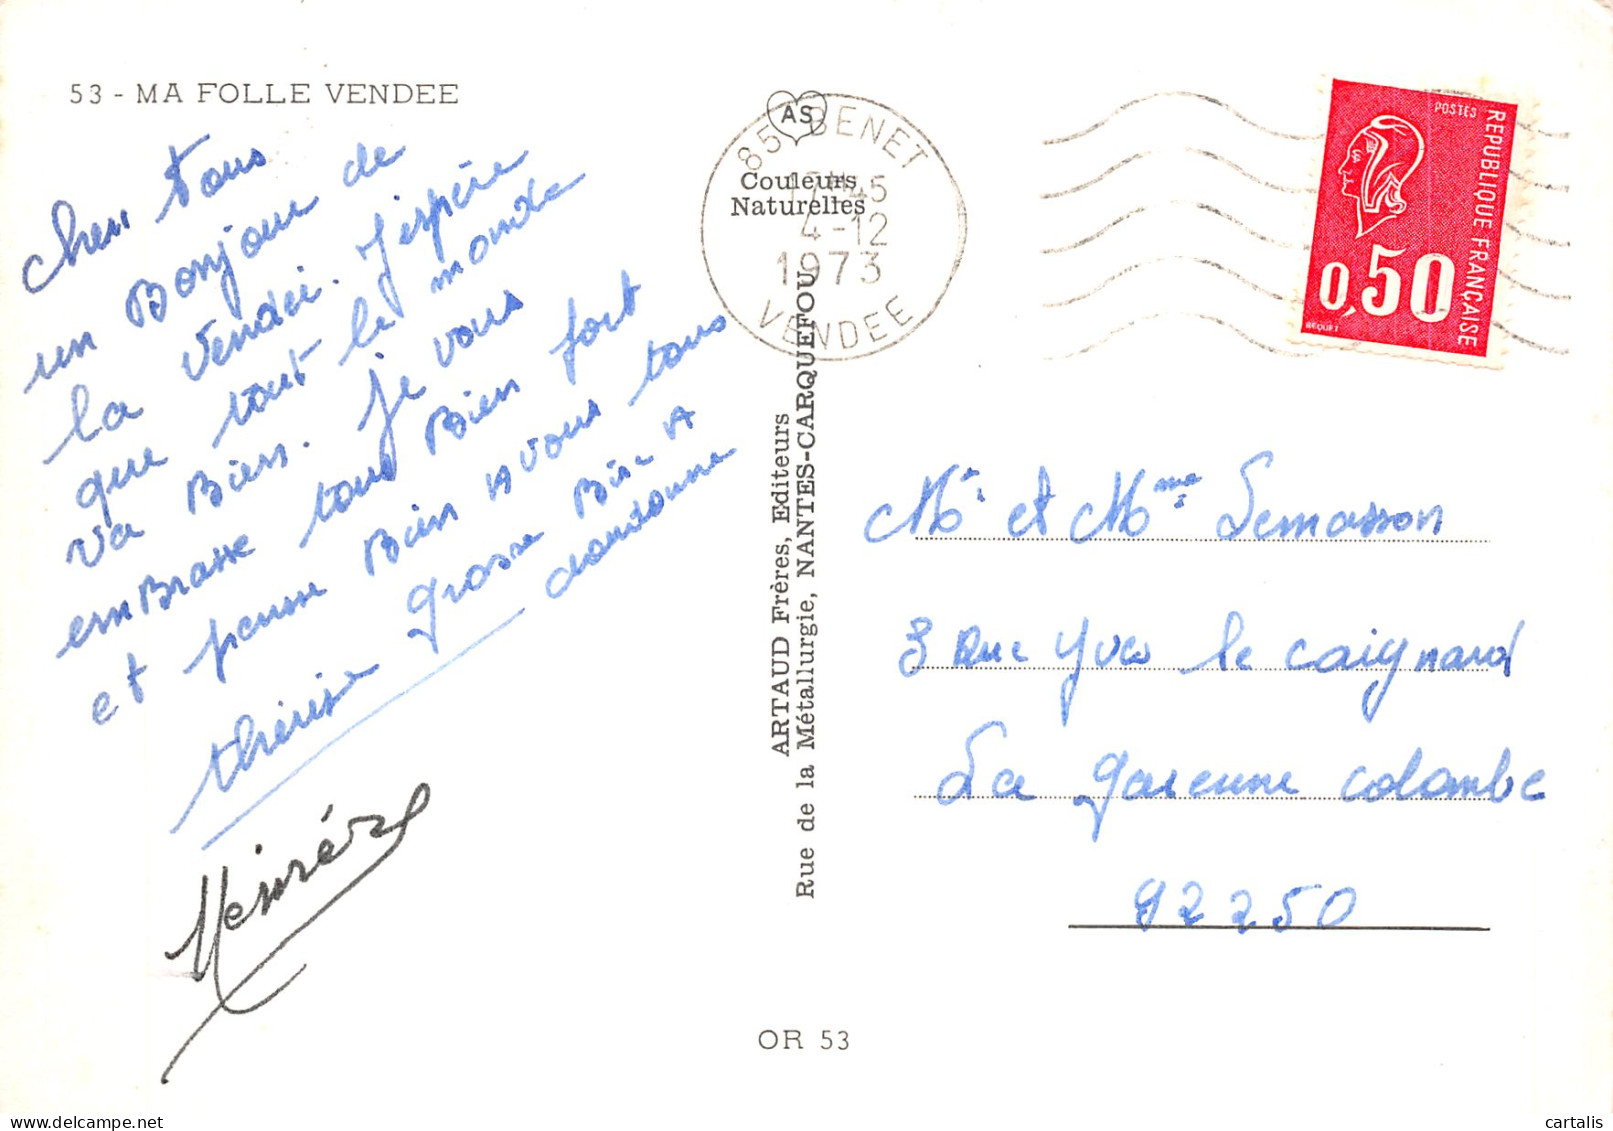 53 - MA FOLLE VENDEE
cher tous
un Bonjour de
la Vendée. J'espère
que tout le monde
va Bien. Je vous
emBrasse tous Bien fort
et pense Bien A vous tous
thérèse grosse Bise A
AS
Couleurs
Naturelles
85 BENET
45
4-12
1973
VENDEE
ARTAUD Frères, Editeurs
Rue de la Métallurgie, NANTES-CARQUEFOU
POSTES
REPUBLIQUE FRANÇAISE
0,50
BEQUET
Mr et Mme Lemasson
3 Rue Yves le Caignard
La garenne colombe
92250
OR 53
cartalis.com